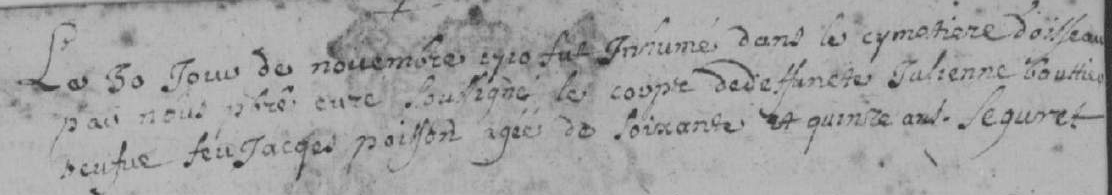 Le 30 Jour de novembre 1710 fut Inhumé dans le cymetiere d'oisseau
par nous pbrē curé soussigné le corps de deffuncte Julienne bouttier
veufue feu Jacqes poisson agée de soixante et quinze ans. Seguret